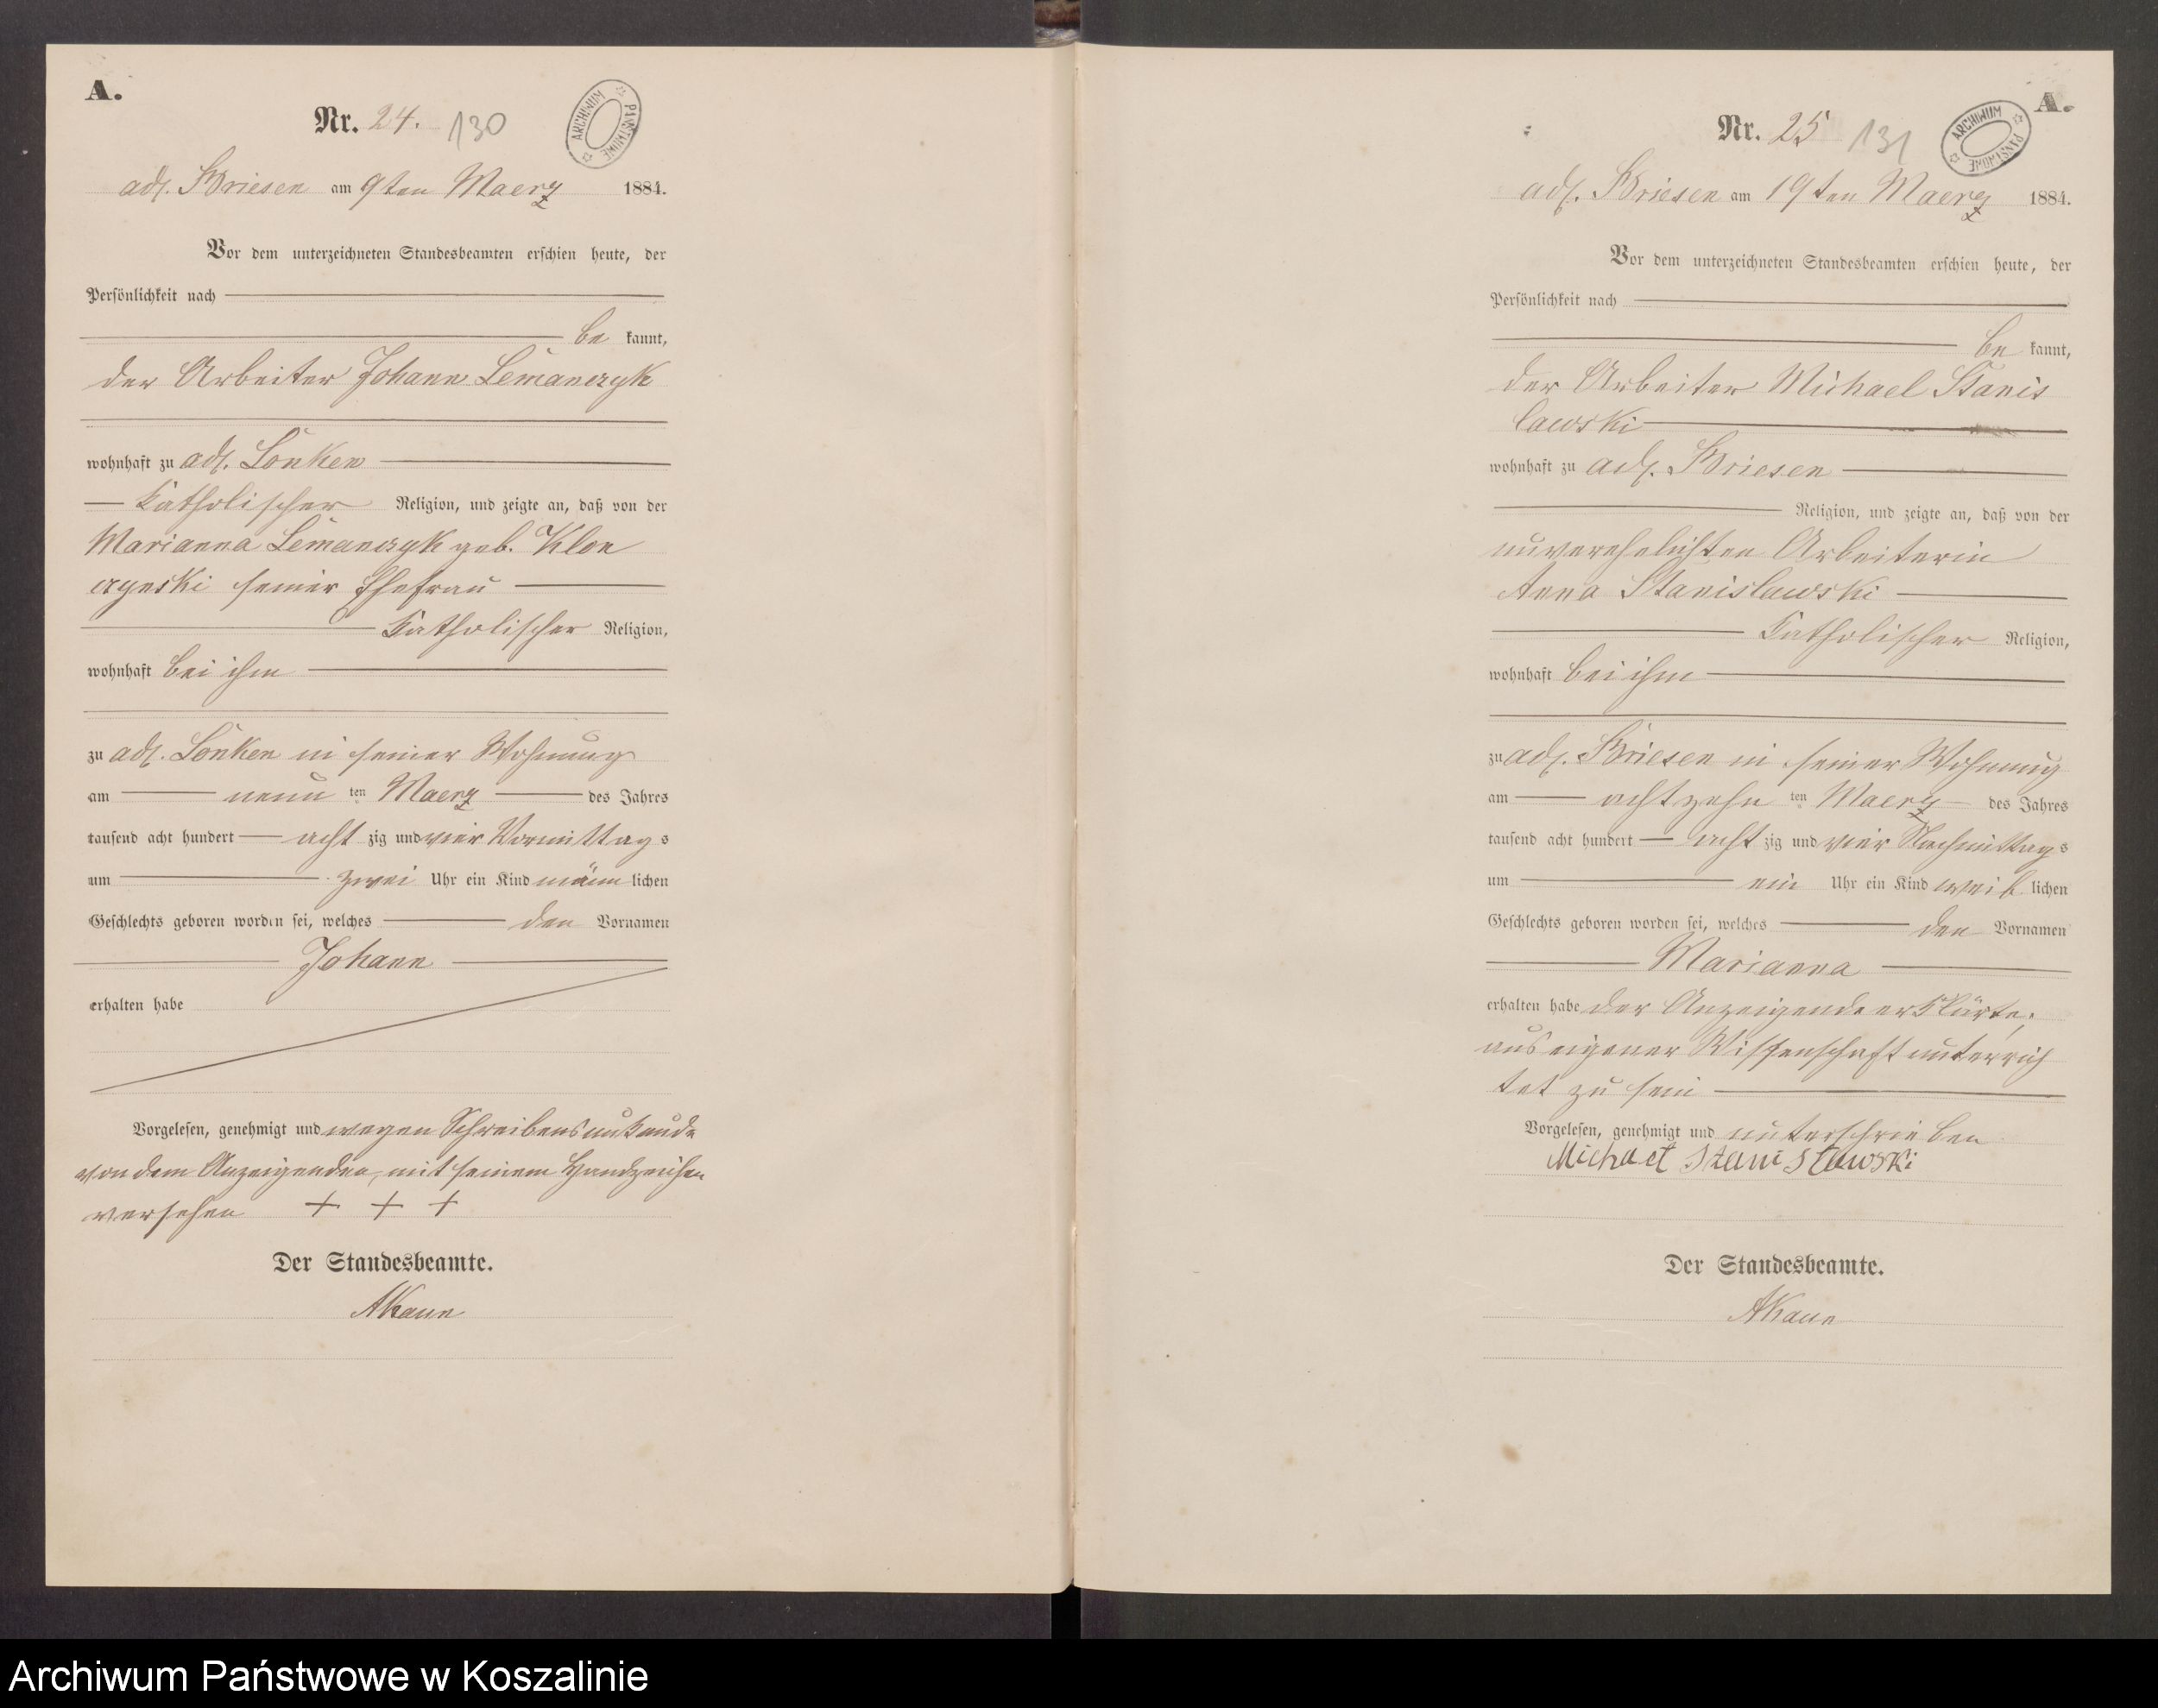 A.
Nr. 24. 130
ARCHIWUM PAŃSTWOWE
adl. Briesen am 9ten Maerz 1884.
Vor dem unterzeichneten Standesbeamten erschien heute, der
Persönlichkeit nach
be kannt,
der Arbeiter Johann Lemanczyk
wohnhaft zu adl. Lonken
katholischer Religion, und zeigte an, daß von der
Marianna Lemanczyk geb. Klon
czynski seiner Ehefrau
katholischer Religion,
wohnhaft bei ihm
zu adl. Lonken in seiner Wohnung
am neun ten Maerz des Jahres
tausend acht hundert acht zig und vier Vormittag s
um zwei Uhr ein Kind männ lichen
Geschlechts geboren worden sei, welches den Vornamen
Johann
erhalten habe
Vorgelesen, genehmigt und wegen Schreibensunkunde
von dem Anzeigenden, mit seinem Handzeichen
versehen + + +
Der Standesbeamte.
A.
Nr. 25 131
ARCHIWUM PAŃSTWOWE
adl. Briesen am 19ten Maerz 1884.
Vor dem unterzeichneten Standesbeamten erschien heute, der
Persönlichkeit nach
be kannt,
der Arbeiter Michael Stanis
lawski
wohnhaft zu adl. Briesen
Religion, und zeigte an, daß von der
unverehelichten Arbeiterin
Anna Stanislawski
katholischer Religion,
wohnhaft bei ihm
zu adl. Briesen in seiner Wohnung
am achtzehn ten Maerz des Jahres
tausend acht hundert acht zig und vier Nachmittag s
um ein Uhr ein Kind weib lichen
Geschlechts geboren worden sei, welches den Vornamen
Marianna
erhalten habe der Anzeigende erklärte,
aus eigener Wissenschaft unterrich
tet zu sein
Vorgelesen, genehmigt und unterschrieben
Michael Stanislawski
Der Standesbeamte.
Archiwum Państwowe w Koszalinie